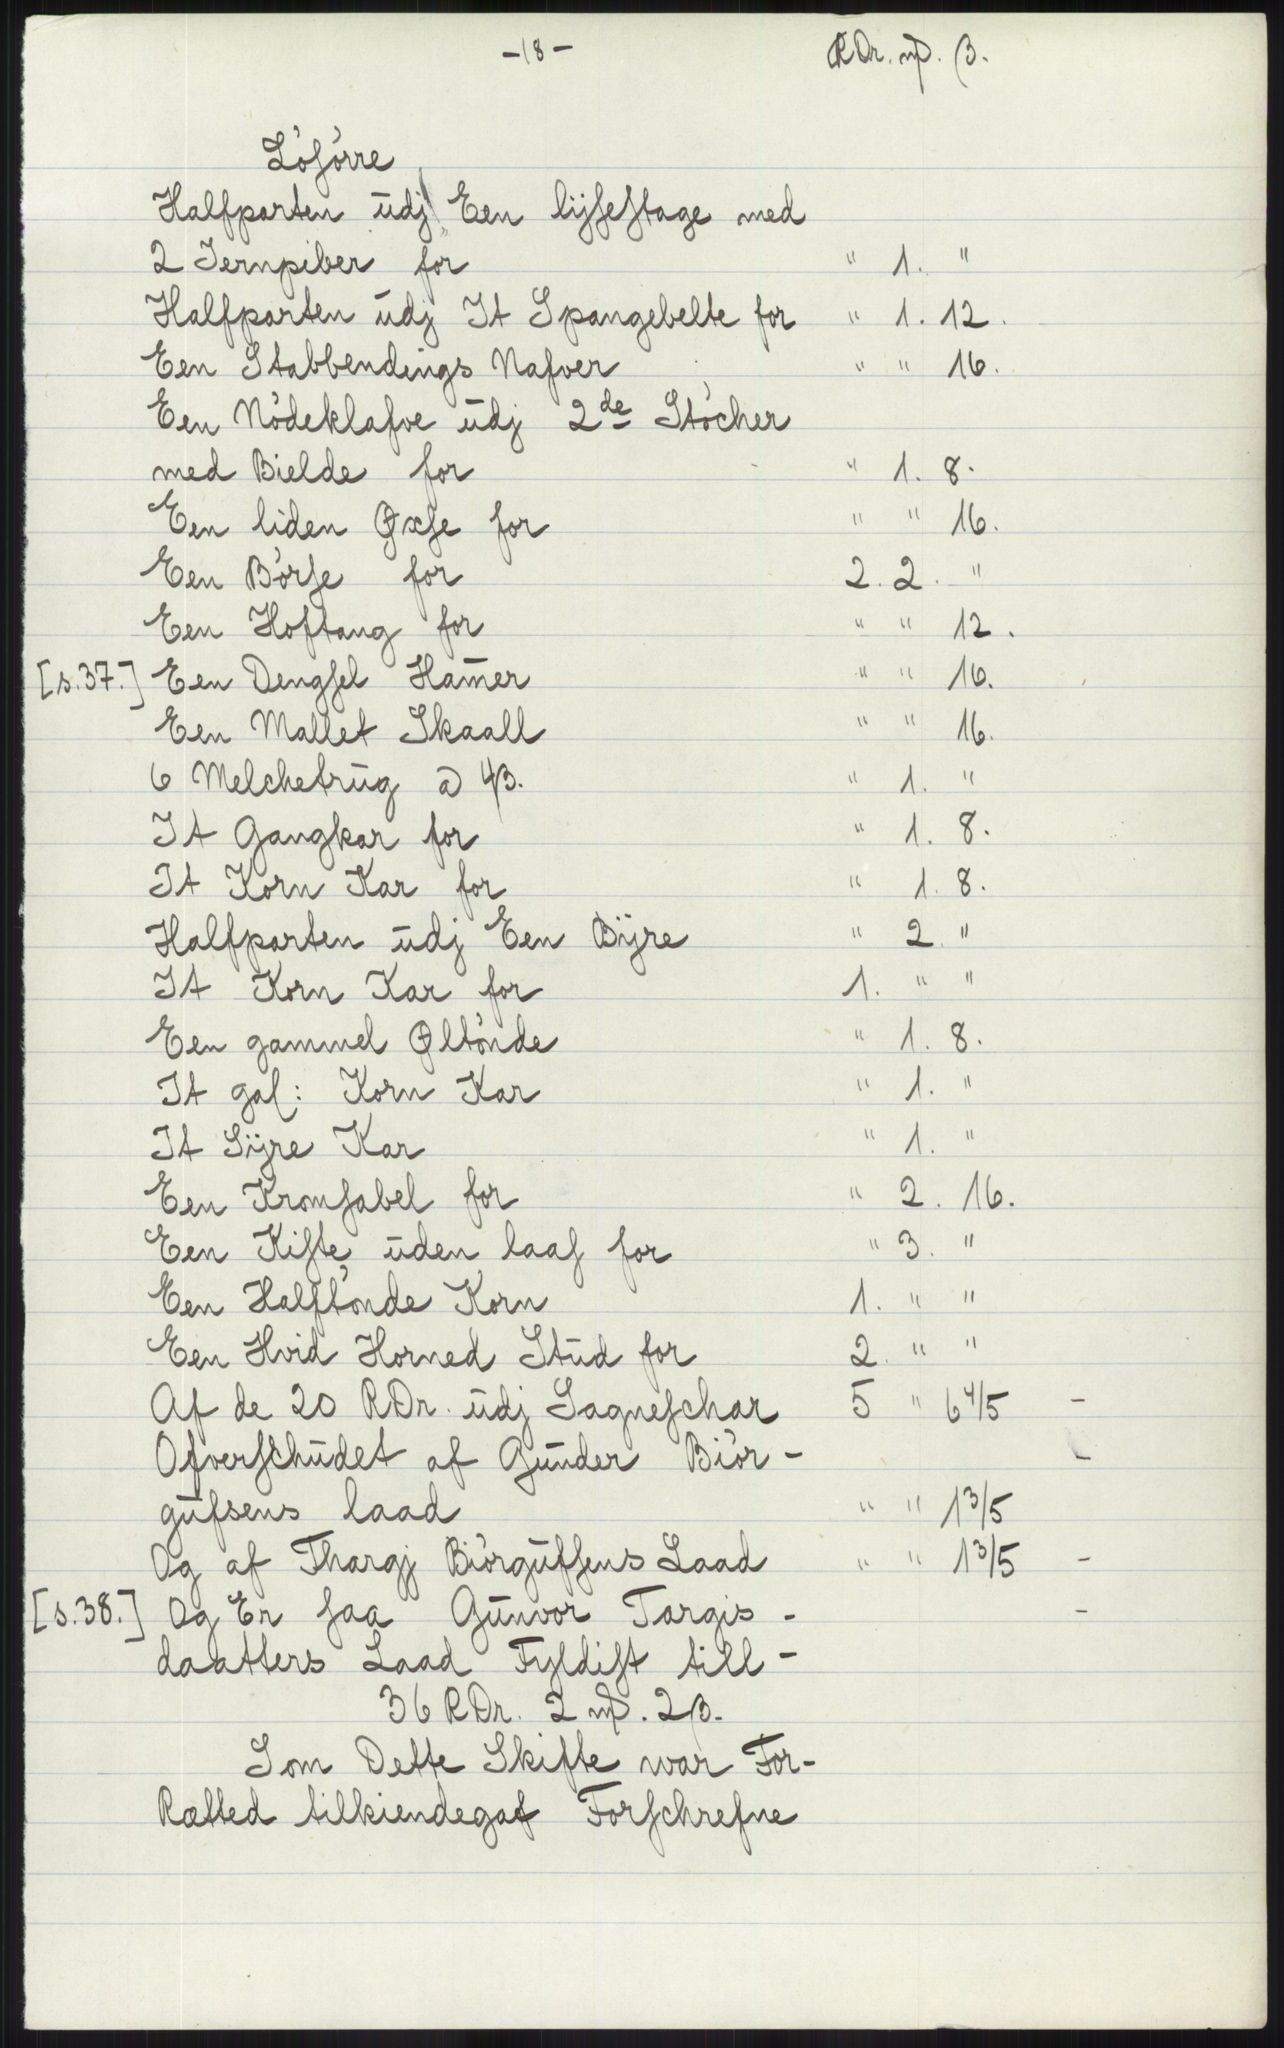 -18- RDr. mk. ß.
Lösörre
Halfparten ūdj Een lijsestage med
2 Jernpiber for " 1. "
Halfparten ūdj It Spangebelte for " 1. 12.
Een Stabbendings Nafver " " 16.
Een Nödeklafve ūdj 2de Stöcher
med Bielde for " 1. 8.
Een liden Øxse for " " 16.
Een Börse for 2. 2. "
Een Hoftang for " " 12.
[s.37.] Een Dengsel Ham̄er " " 16.
Een Mallet Skaall " " 16.
6 Melchetrūg a 4ß. " 1. "
It Gangkar for " 1. 8.
It Korn Kar for " 1. 8.
Halfparten ūdj Een Bijre " 2. "
It Korn Kar for 1. " "
Een gammel Øltönde " 1. 8.
It gal: Korn Kar " 1. "
It Sijre Kar " 1. "
Een Kromsabel for " 2. 16.
Een Kiste ūden laas for " 3. "
Een Halftönde Korn 1. " "
Een Hvid Horned Stūd for 2. " "
Af de 20 RDr. ūdj Sagneschar 5 " 6 4/5 -
Ofverschūdet af Gūnder Biör-
gūfsens laad " " 1 3/5
Og af Thargj Biörgūfsens Laad " " 1 3/5 -
[s.38.] Og Er saa Gūnvor Targis- -
daatters Laad Fyldist till-
36 RDr. 2 mk. 2ß.
Som Dette Skifte war For-
Rætted tilkiendegaf Forschrefne